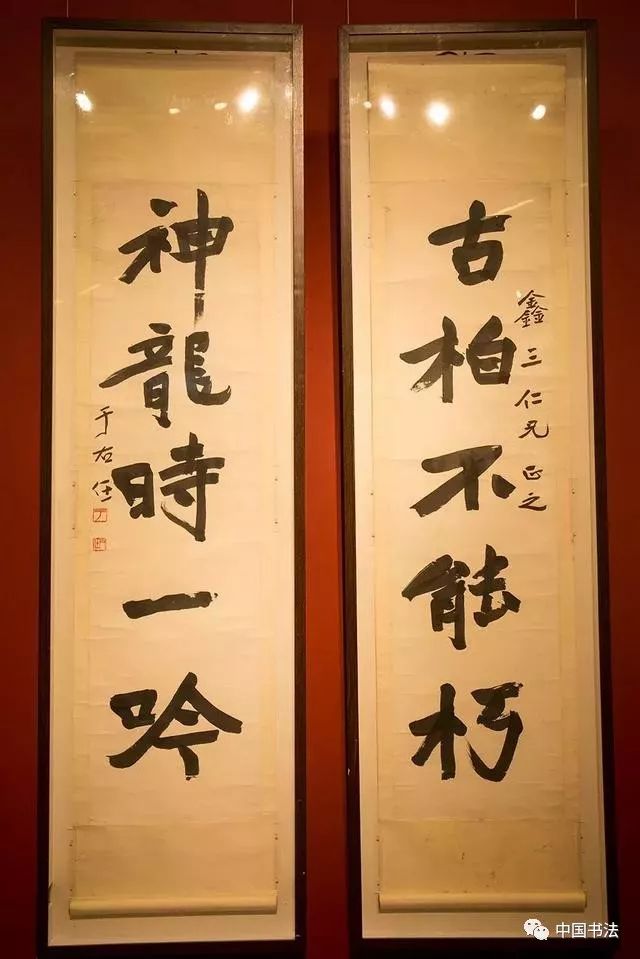 古柏不能朽
鑫三仁兄正之
神龍時一吟
于右任
中国书法